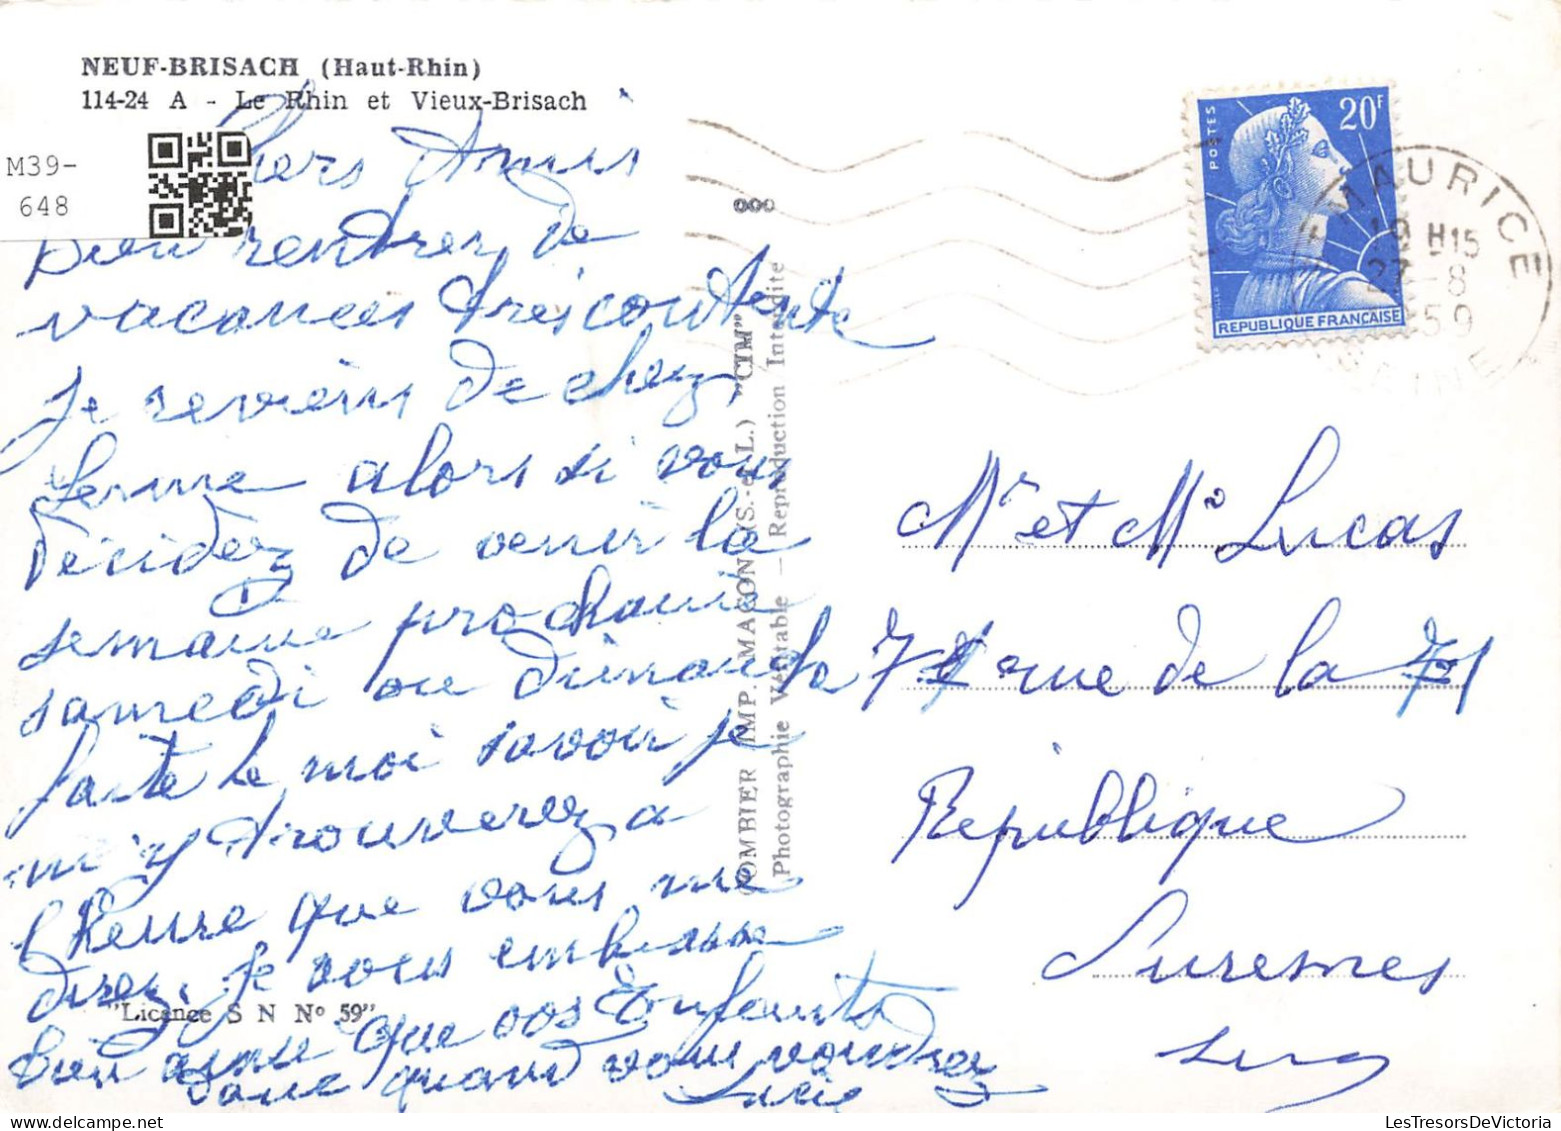 NEUF-BRISACH (Haut-Rhin)
114-24 A - Le Rhin et Vieux-Brisach
M39-
648
Chers Amis
Bien rentrer de
vacances tres contente
je reviens de chez
alors si vous
décidez de venir la
semaine prochaine
samedi ou dimanche
faite le moi savoir je
m'y trouverez a
l heure que vous me
direz. je vous embrasse
bien ainsi que vos Enfants
donc quand vous voudrez
Lucie
"Licence S N Nº 59"
COMBIER IMP. MACON (S.-et-L.) "CIM"
Photographie Véritable — Reproduction Interdite
POSTES
20F
REPUBLIQUE FRANÇAISE
MAURICE
19 H15
27-8
59
SEINE
Mr et Me Lucas
71 rue de la
République
Suresnes
LesTresorsDeVictoria